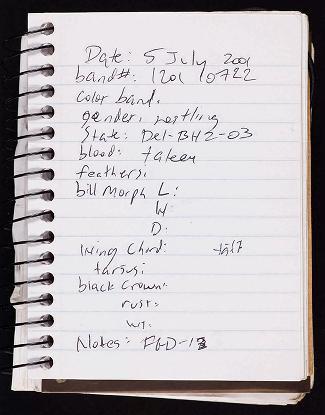 Date: 5 July 2001
band#: 1201 10722
color band:
gender: nestling
State: Del-BH2-03
blood: taken
feathers:
bill Morph L:
W:
D:
Wing Chord:
tarsus:
black Crown:
rust:
wt:
Notes: FGD-13